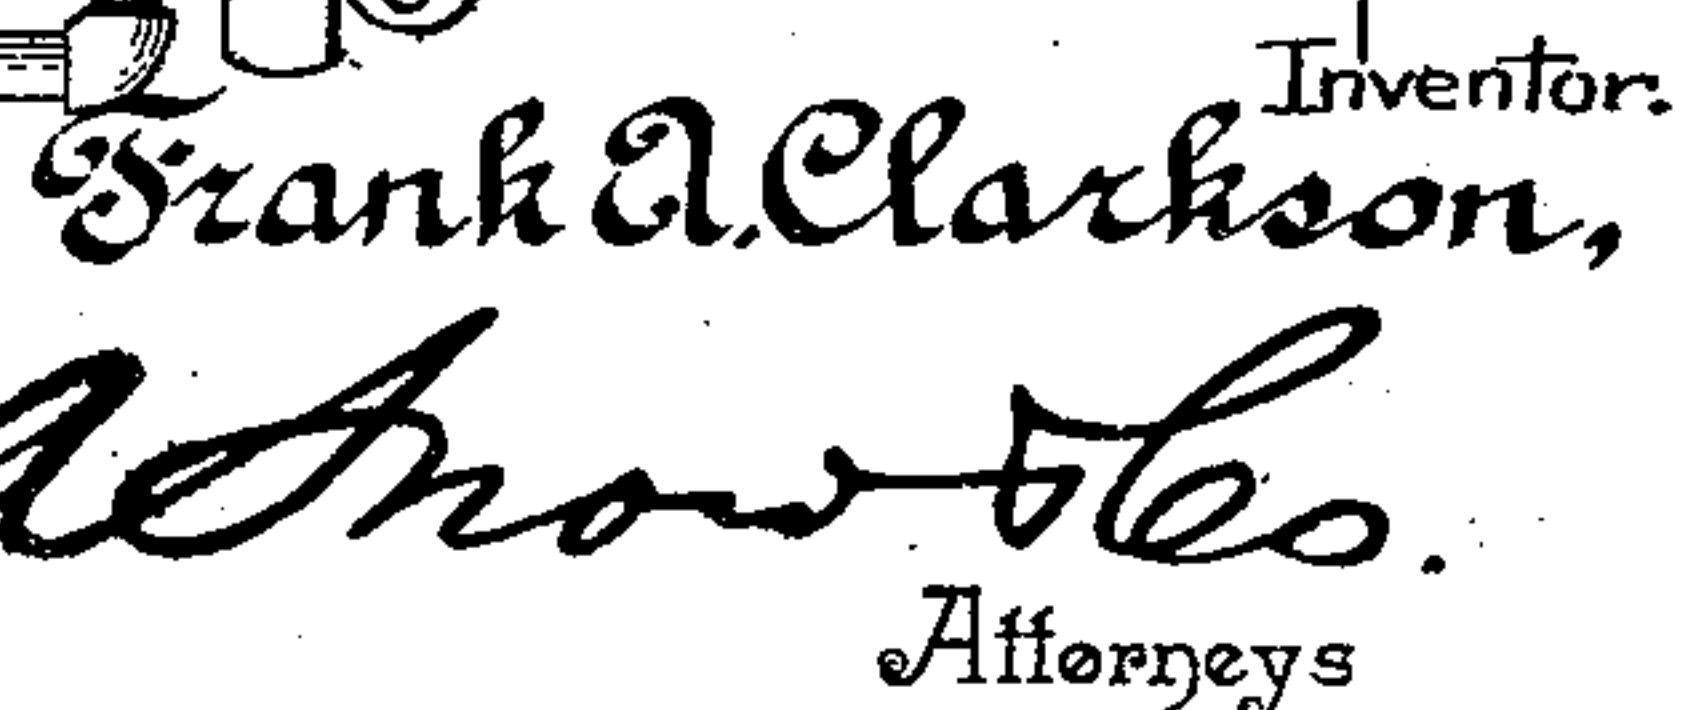 Inventor.
Frank A. Clarkson,
A Snow & Co.
Attorneys